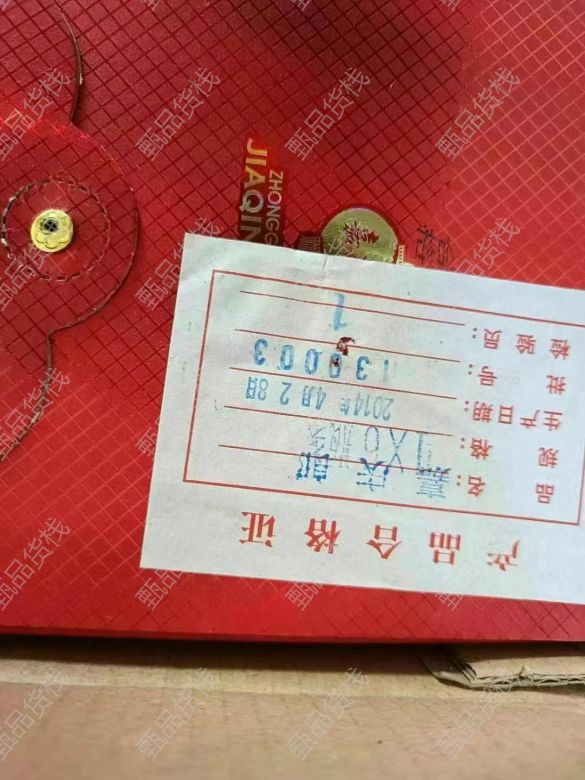 产品合格证
品名：嘉庆郎
规格：1X6瓶
生产日期：2014年4月28日
批号：130003
检验员：1
ZHONGG
JIAQIN
甄品货栈